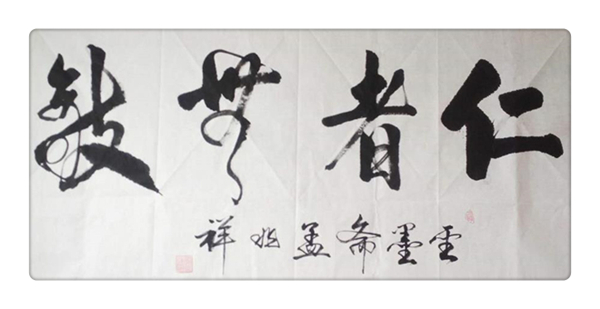 仁者無敵
雲墨斋孟兆祥